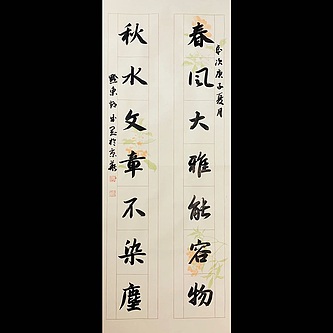 春风大雅能容物
岁次庚子夏月
秋水文章不染尘